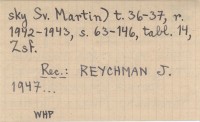 sky Sv. Martin) t. 36-37, r.
1942-1943, s. 63-146, tabl. 14,
Zsf.
Rec.: REYCHMAN J.
1947...
WHP